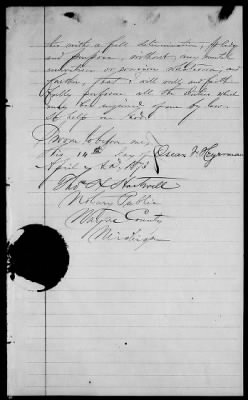 this with a full determination, pledge
and purpose without any mental
reservation or evasion whatsoever, and
further, that I will well and faith-
fully perform all the duties which
may be required of me by law.
So help me God.
Sworn to before me
this 14th day of Oscar F. Heyerman
April A.D. 1871
Thos. H. Hartwell
Notary Public
Wayne County
Michigan